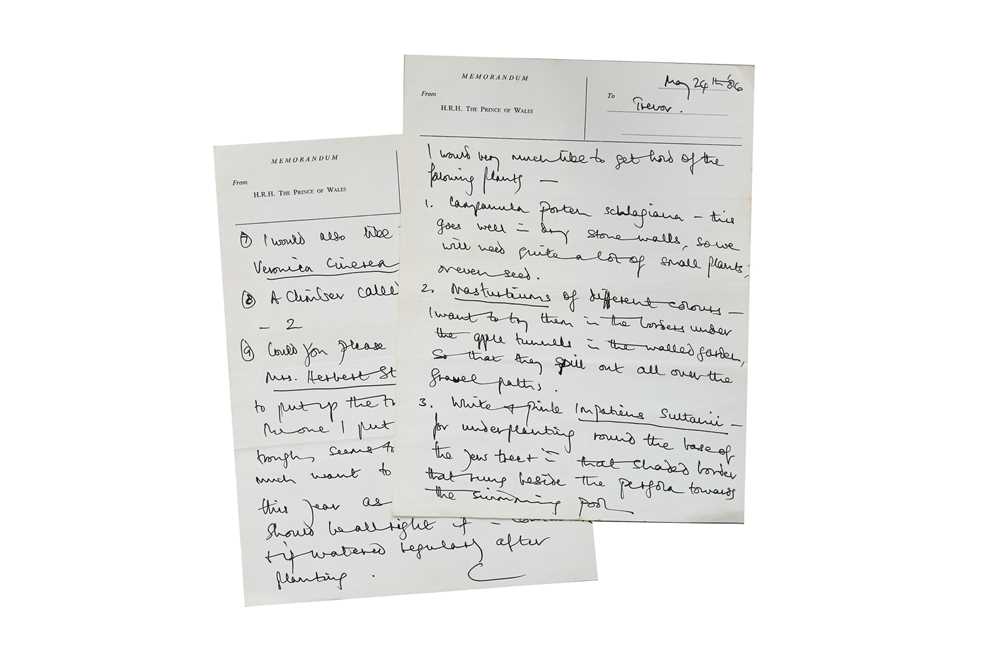 MEMORANDUM
From
H.R.H. THE PRINCE OF WALES
To
May 24th '86
Trevor.
I would very much like to get hold of the
following plants —
1. Campanula portenschlagiana — this
goes well in dry stone walls, so we
will need quite a lot of small plants,
or even seed.
2. Nasturtiums of different colours —
I want to try them in the borders under
the apple tunnels in the walled garden,
so that they spill out all over the
gravel paths.
3. White & pink Impatiens Sultanii —
for underplanting round the base of
the yew tree & in that shaded border
that runs beside the pergola towards
the swimming pool
MEMORANDUM
From
H.R.H. THE PRINCE OF WALES
7 I would also like
Veronica Cinerea
8 A climber called
— 2
9 Could you please
Mrs. Herbert St
to put up the
The one I put
trough, seems to
much want to
this year as
should be all right if
+ if watered regularly after
planting.
C